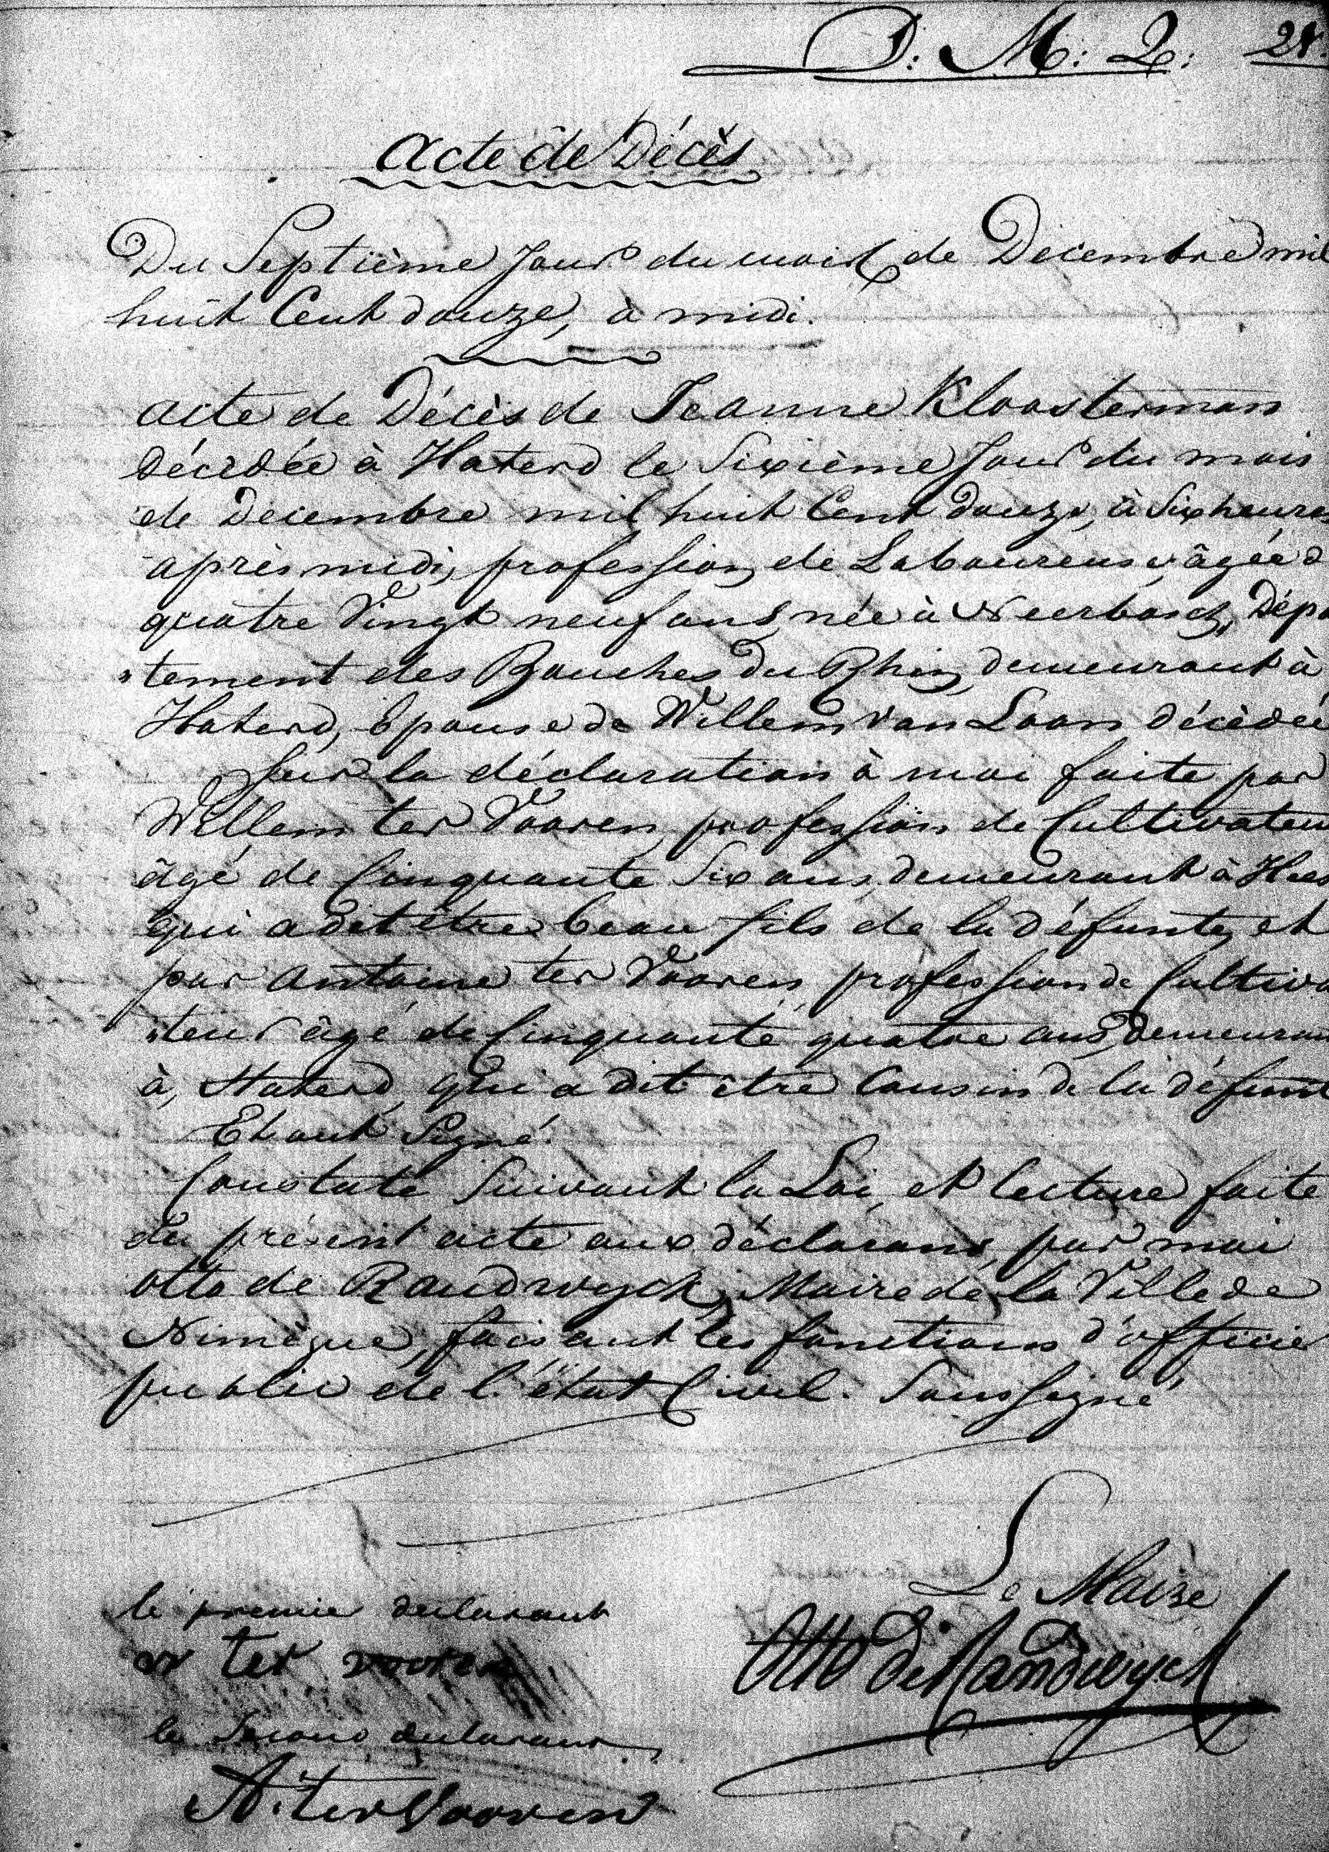 D: M: 2: 24.
Acte de Décès
Du Septième Jour du mois de Decembre mil
huit Cent douze, à midi.
acte de Décès de Jeanne Kloosterman
décedée à Haterd le Sixième Jour du mois
de Decembre mil huit Cent douze, à Six heures
après midi, profession de Laboureus, âgée d
quatre Vingt neuf ans, née à Neerbosch, Dépa
tement des Bouches du Rhin, demeurant à
Haterd, Epouse de Willem Van Loon décèdée
Sur la déclaration à moi faite par
Willem ter Vooren, profession de Cultivateur
âgé de Cinquante Six ans, demeurant à Hees
qui a dit etre beau fils de la défunte, et
par Antoine ter Vooren, profession de Cultiva
teur âgé de Cinquante quatre ans, demeuran
à, Haterd, qui a dit être Cousin de la défunt
Et ont Signé.
Constaté Suivant la Loi, et lecture faite
du présent acte aux déclarans, par moi
Otto de Randwyck, Maire de la Ville de
Nimègue, faisant les fonctions d'officier
public de l'état Civil. Soussigné
Le Maire
le premie declarant
W ter vooren
Otto De Randwyck
le Second declarant
A: ter Vooren